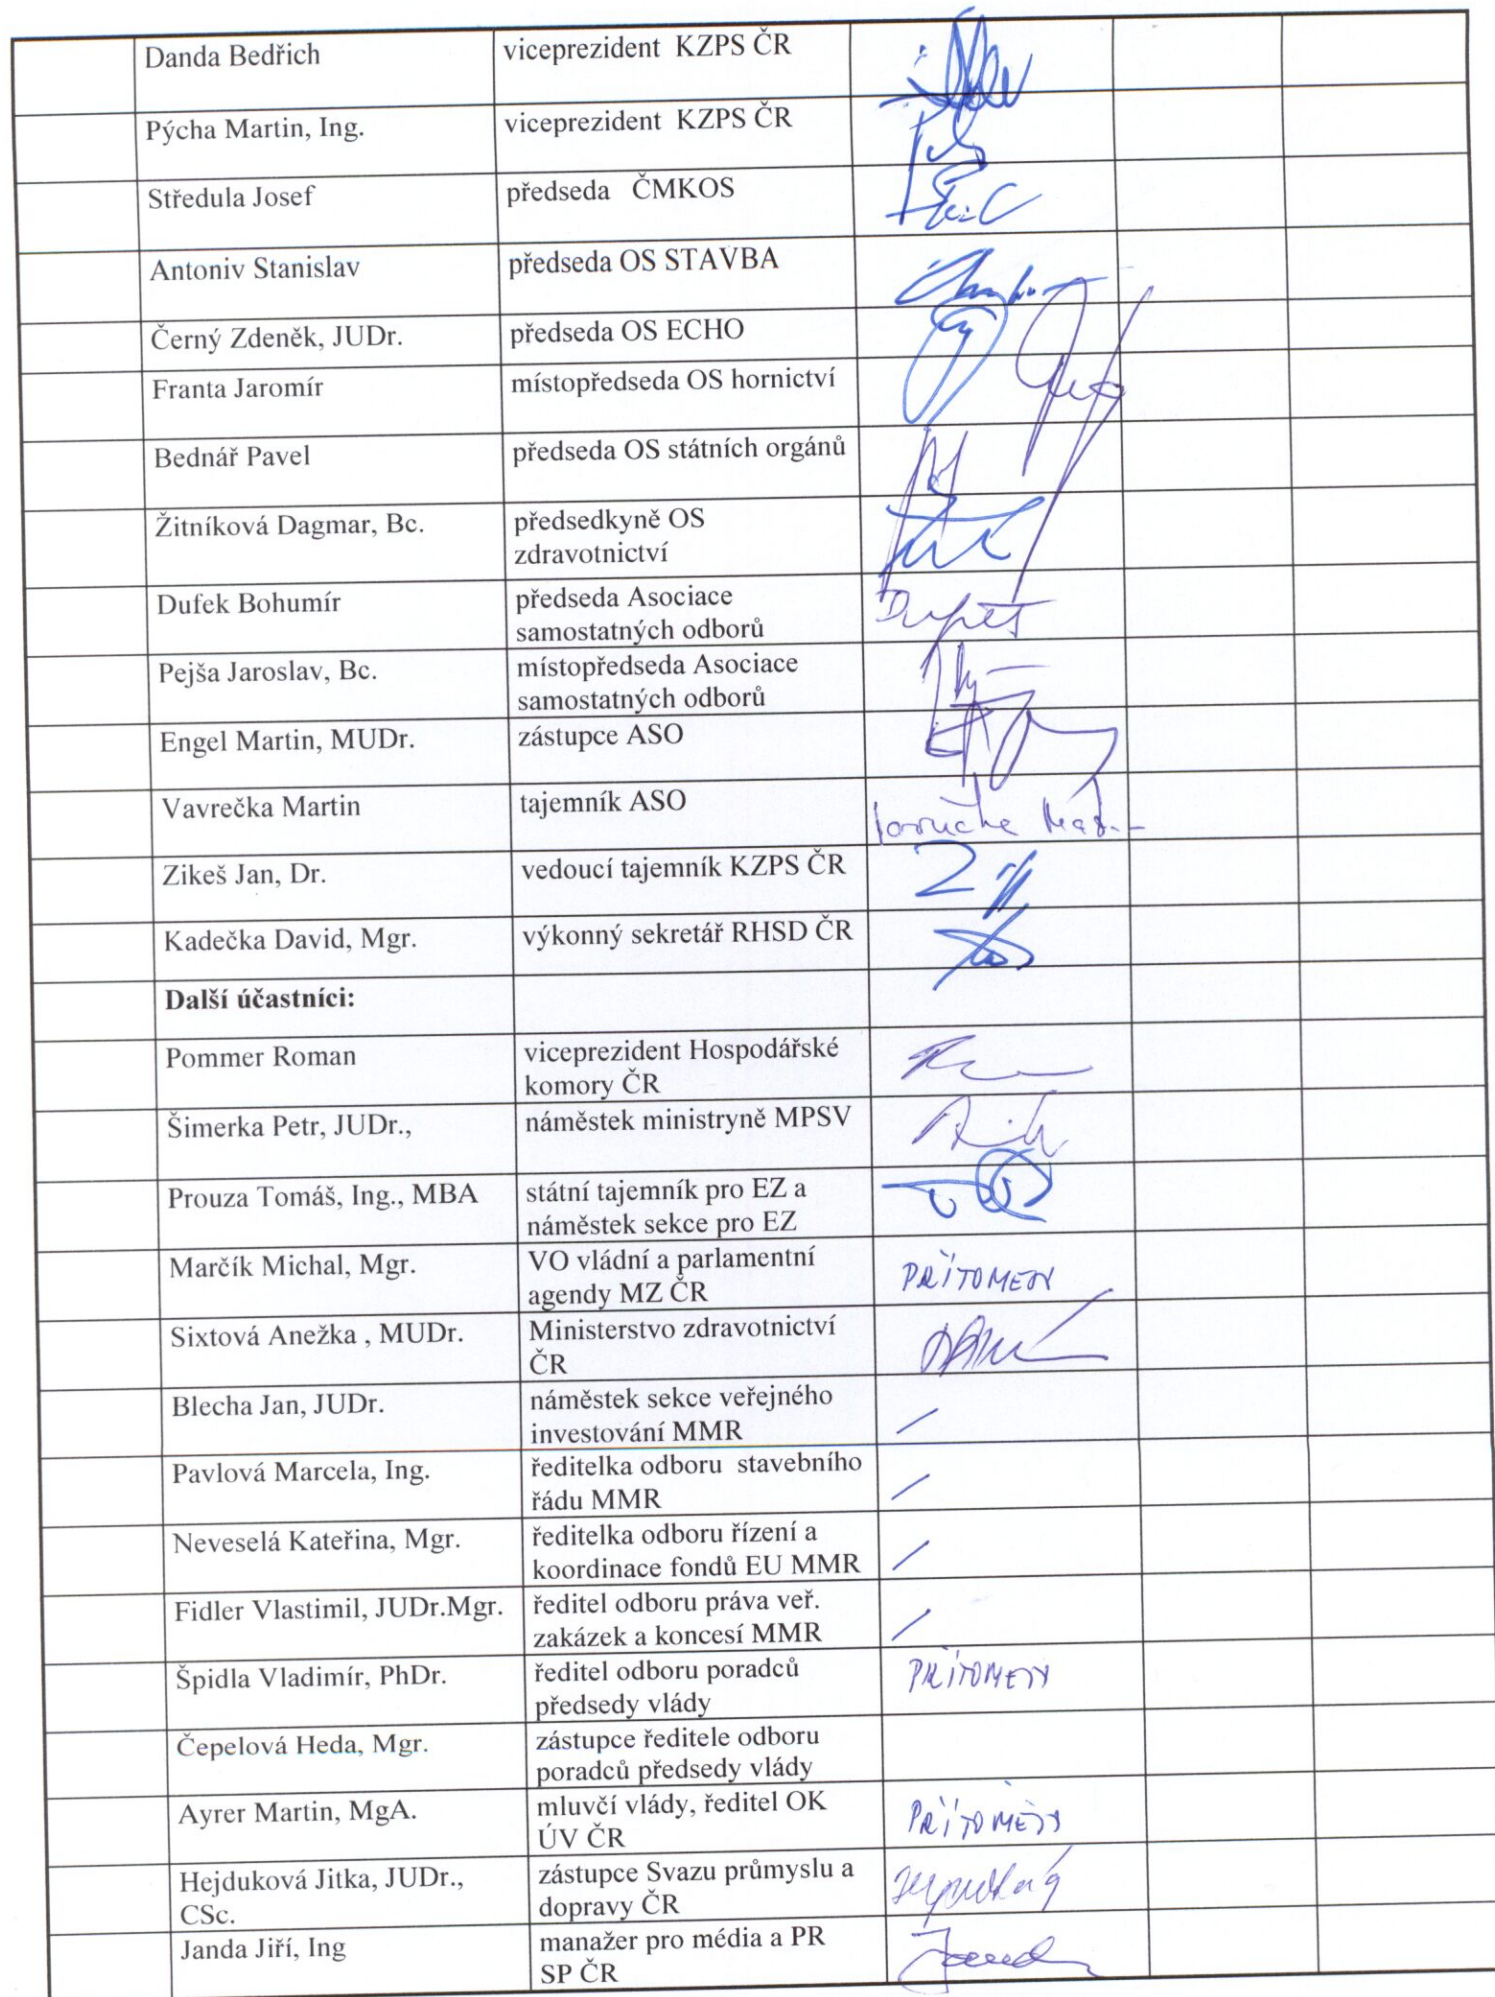 Danda Bedřich viceprezident KZPS ČR
Pýcha Martin, Ing. viceprezident KZPS ČR
Středula Josef předseda ČMKOS
Antoniv Stanislav předseda OS STAVBA
Černý Zdeněk, JUDr. předseda OS ECHO
Franta Jaromír místopředseda OS hornictví
Bednář Pavel předseda OS státních orgánů
Žitníková Dagmar, Bc. předsedkyně OS
zdravotnictví
Dufek Bohumír předseda Asociace
samostatných odborů
Pejša Jaroslav, Bc. místopředseda Asociace
samostatných odborů
Engel Martin, MUDr. zástupce ASO
Vavrečka Martin tajemník ASO
Zikeš Jan, Dr. vedoucí tajemník KZPS ČR
Kadečka David, Mgr. výkonný sekretář RHSD ČR
Další účastníci:
Pommer Roman viceprezident Hospodářské
komory ČR
Šimerka Petr, JUDr., náměstek ministryně MPSV
Prouza Tomáš, Ing., MBA státní tajemník pro EZ a
náměstek sekce pro EZ
Marčík Michal, Mgr. VO vládní a parlamentní
agendy MZ ČR PŘÍTOMEN
Sixtová Anežka , MUDr. Ministerstvo zdravotnictví
ČR
Blecha Jan, JUDr. náměstek sekce veřejného
investování MMR
Pavlová Marcela, Ing. ředitelka odboru stavebního
řádu MMR
Neveselá Kateřina, Mgr. ředitelka odboru řízení a
koordinace fondů EU MMR
Fidler Vlastimil, JUDr.Mgr. ředitel odboru práva veř.
zakázek a koncesí MMR
Špidla Vladimír, PhDr. ředitel odboru poradců PŘÍTOMEN
předsedy vlády
Čepelová Heda, Mgr. zástupce ředitele odboru
poradců předsedy vlády
Ayrer Martin, MgA. mluvčí vlády, ředitel OK PŘÍTOMEN
ÚV ČR
Hejduková Jitka, JUDr., zástupce Svazu průmyslu a
CSc. dopravy ČR
Janda Jiří, Ing manažer pro média a PR
SP ČR